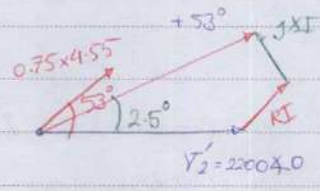 +53°
jXI
0.75x4.55
53°
2.5°
RI
V₂' = 2200∡0